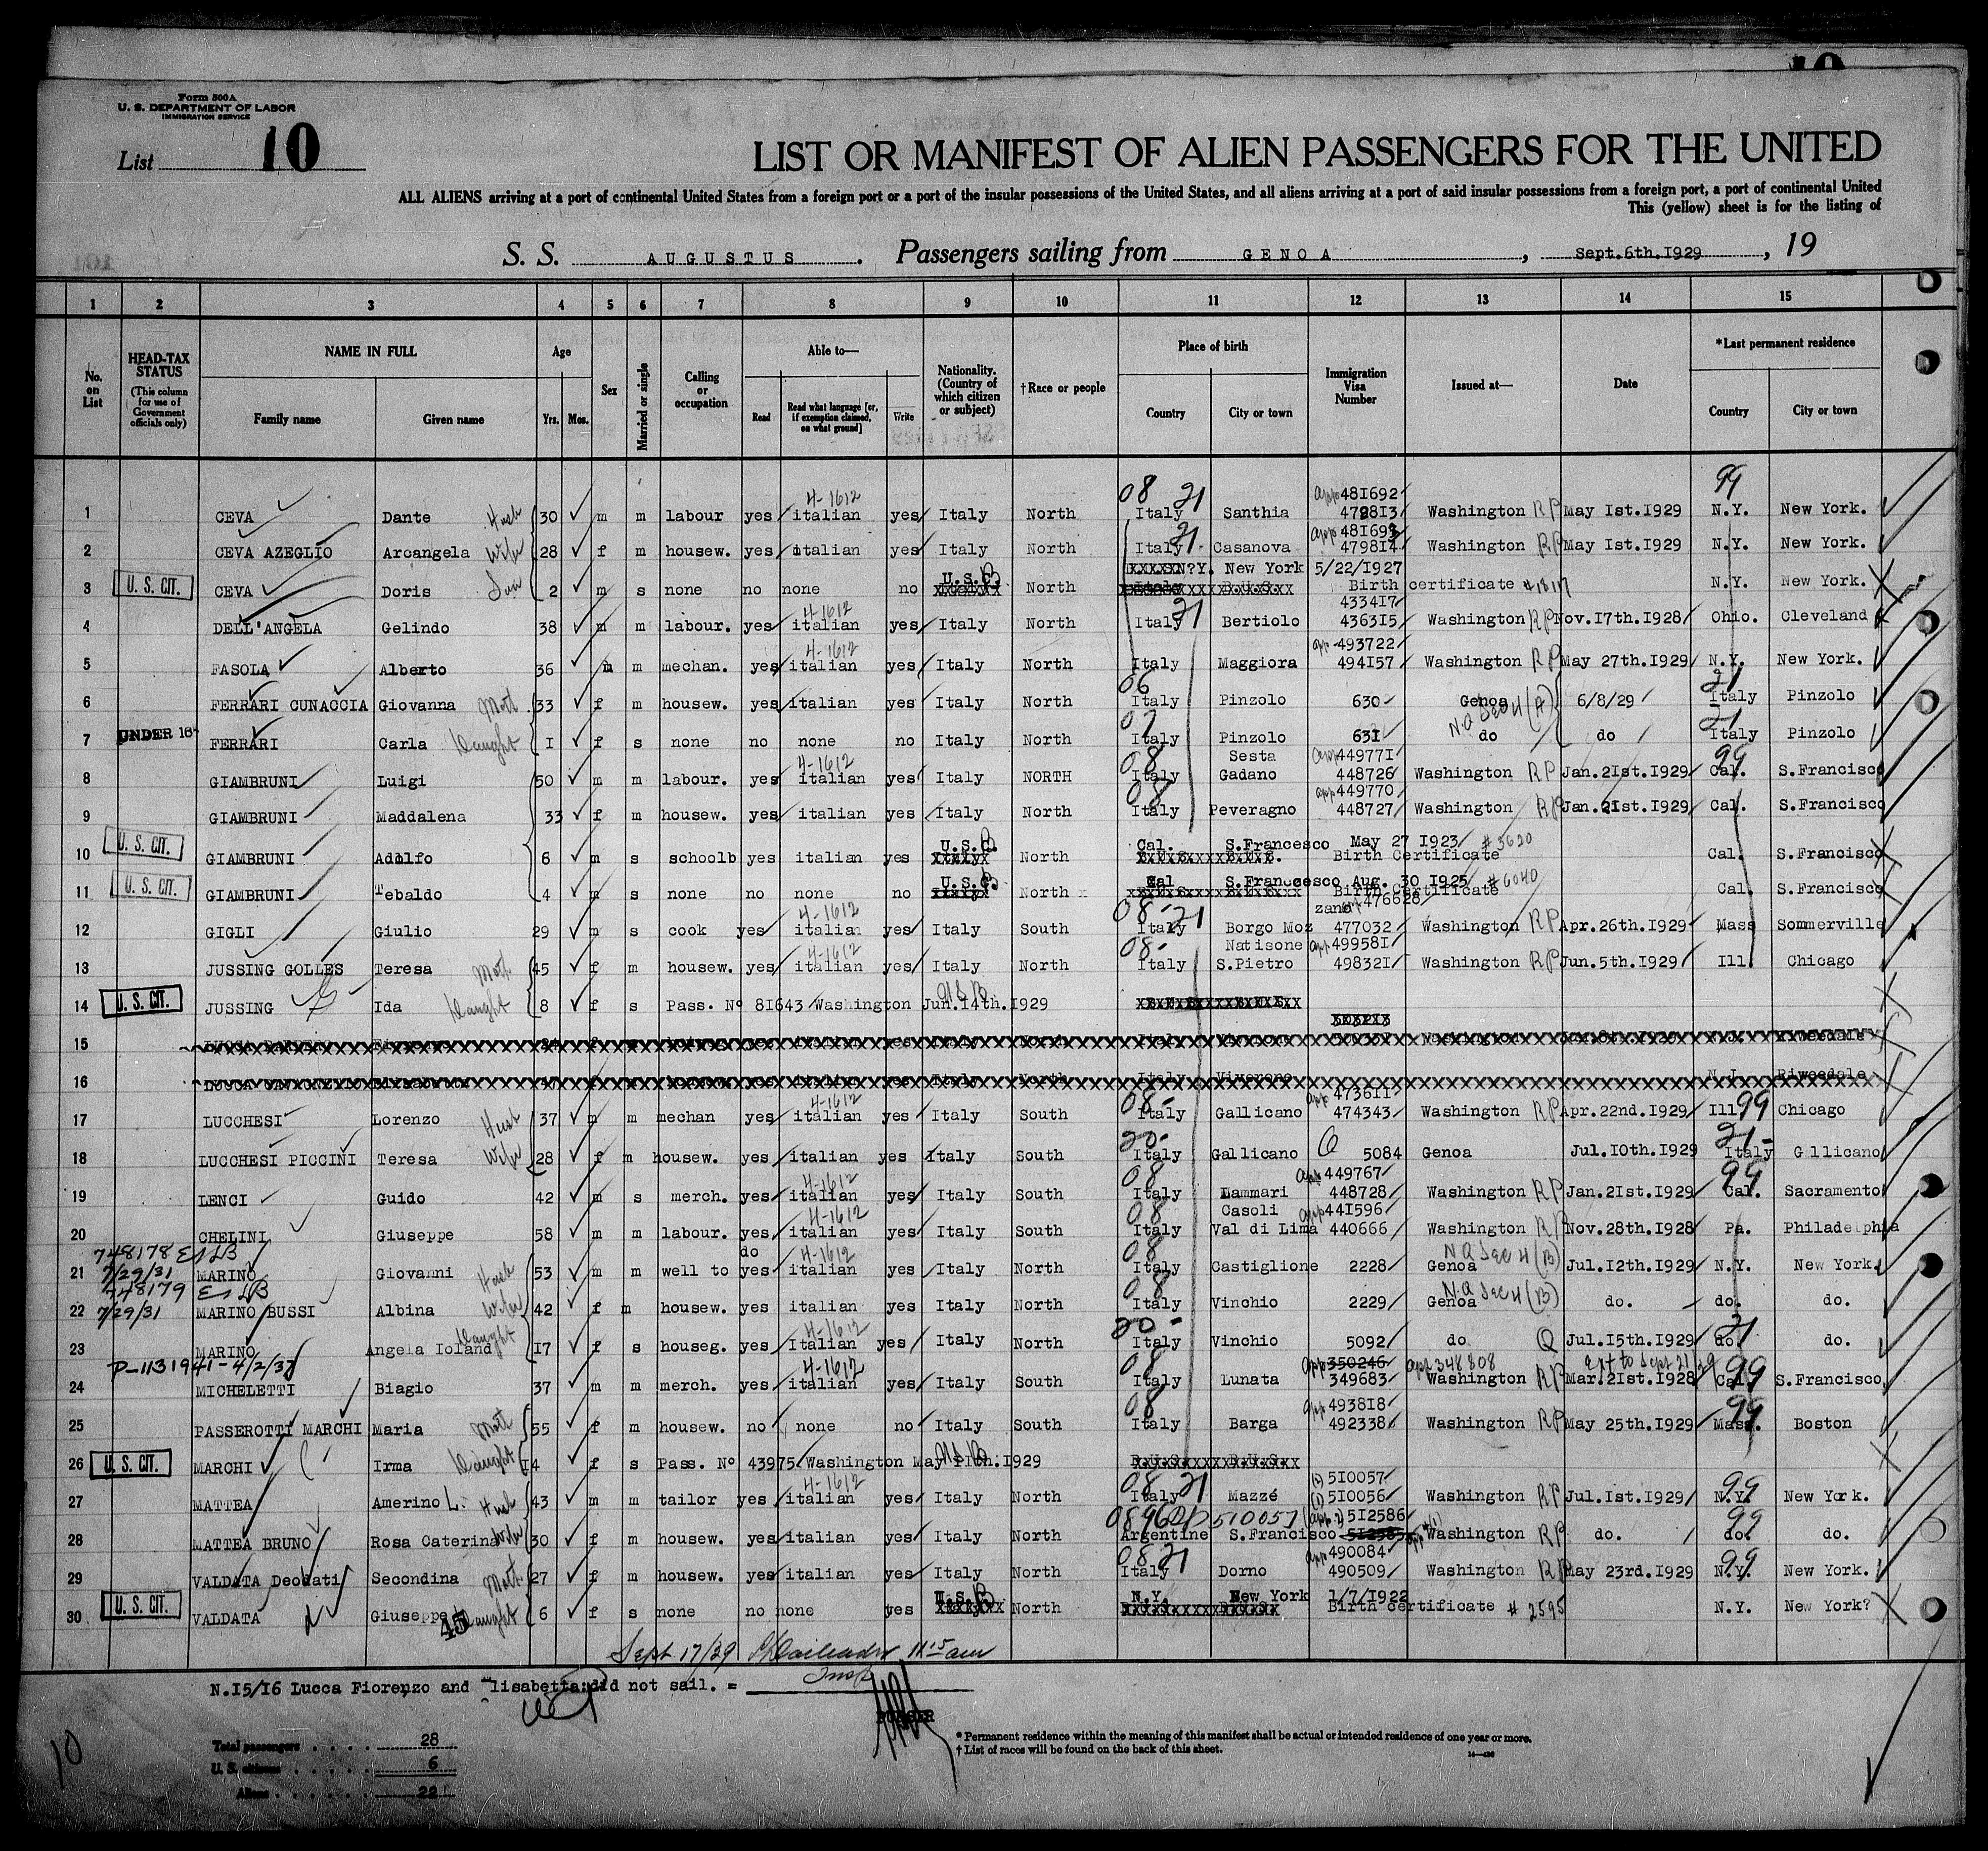 Form 500A
U. S. DEPARTMENT OF LABOR
IMMIGRATION SERVICE
List 10
LIST OR MANIFEST OF ALIEN PASSENGERS FOR THE UNITED
ALL ALIENS arriving at a port of continental United States from a foreign port or a port of the insular possessions of the United States, and all aliens arriving at a port of said insular possessions from a foreign port, a port of continental United
This (yellow) sheet is for the listing of
S. S. AUGUSTUS . Passengers sailing from GENOA , Sept.6th.I929 , 19
1 2 3 4 5 6 7 8 9 10 11 12 13 14 15
No. on List
HEAD-TAX STATUS (This column for use of Government officials only)
NAME IN FULL
Family name
Given name
Age
Yrs. Mos.
Sex
Married or single
Calling or occupation
Able to—
Read
Read what language [or, if exemption claimed, on what ground]
Write
Nationality. (Country of which citizen or subject)
†Race or people
Place of birth
Country
City or town
Immigration Visa Number
Issued at—
Date
*Last permanent residence
Country
City or town
4-1612 08 21 app 48I692 99
1 CEVA Dante Husb 30 m m labour yes italian yes Italy North Italy Santhia 4798I3 Washington RP May Ist.I929 N.Y. New York.
21 app 48I693
2 CEVA AZEGLIO Arcangela Wife 28 f m housew. yes italian yes Italy North Italy Casanova 4798I4 Washington RP May Ist.I929 N.Y. New York.
U.S. N?Y. New York 5/22/I927
3 U. S. CIT. CEVA Doris 2 m s none no none no North Birth certificate N.Y. New York.
4-1612 21 4334I7
4 DELL'ANGELA Gelindo 38 m m labour. yes italian yes Italy North Italy Bertiolo 4363I5 Washington RP Nov.I7th.I928 Ohio. Cleveland
4-1612 app 493722
5 FASOLA Alberto 36 m m mechan. yes italian yes Italy North Italy Maggiora 494I57 Washington RP May 27th.I929 N.Y. New York.
06 21
6 FERRARI CUNACCIA Giovanna Moth 33 f m housew. yes italian yes Italy North Italy Pinzolo 630 Genoa 6/8/29 Italy Pinzolo
NQ Sec 4 (A) 21
7 UNDER 16 FERRARI Carla Daught I f s none no none no Italy North Italy Pinzolo 63I do do Italy Pinzolo
4-1612 08 Sesta app 44977I 99
8 GIAMBRUNI Luigi 50 m m labour. yes italian yes Italy NORTH Italy Gadano 448726 Washington RP Jan.2Ist.I929 Cal. S.Francisco
08 app 449770
9 GIAMBRUNI Maddalena 33 f m housew. yes italian yes Italy North Italy Peveragno 448727 Washington RP Jan.2Ist.I929 Cal. S.Francisco
U.S. Cal. S.Francesco May 27 I923 # 3620
10 U. S. CIT. GIAMBRUNI Adolfo 6 m s schoolb yes italian yes North Birth Certificate Cal. S.Francisco
U.S. Cal S.Francesco Aug. 30 I925 # 6040
11 U. S. CIT. GIAMBRUNI Tebaldo 4 m s none no none no North Birth Certificate Cal. S.Francisco
4-1612 08 21 zano 476628
12 GIGLI Giulio 29 m s cook yes italian yes Italy South Italy Borgo Moz 477032 Washington RP Apr.26th.I929 Mass Sommerville
4-1612 08 Natisone app 49958I
13 JUSSING GOLLES Teresa Moth 45 f m housew. yes italian yes Italy North Italy S.Pietro 49832I Washington RP Jun.5th.I929 Ill Chicago
14 U. S. CIT. JUSSING Ida Daught 8 f s Pass. Nº 8I643 Washington Jun.I4th.I929
15
16
4-1612 08 app 4736II 99
17 LUCCHESI Lorenzo Husb 37 m m mechan yes italian yes Italy South Italy Gallicano 474343 Washington RP Apr.22nd.I929 Ill Chicago
20 Q 21
18 LUCCHESI PICCINI Teresa Wife 28 f m housew. yes italian yes Italy South Italy Gallicano 5084 Genoa Jul.I0th.I929 Italy Gllicano
4-1612 08 app 449767 99
19 LENCI Guido 42 m s merch. yes italian yes Italy South Italy Lammari 448728 Washington RP Jan.2Ist.I929 Cal. Sacramento
4-1612 08 Casoli app 44I596
20 CHELINI Giuseppe 58 m m labour. yes italian yes Italy South Italy Val di Lima 440666 Washington RP Nov.28th.I928 Pa. Philadelphia
748178 do 4-1612 08 NQ Sec 4 (B)
21 7/29/31 MARINO Giovanni Husb 53 m m well to yes italian yes Italy North Italy Castiglione 2228 Genoa Jul.I2th.I929 N.Y. New York.
748179 08 NQ Sec 4 (B)
22 7/29/31 MARINO BUSSI Albina Wife 42 f m housew. yes italian yes Italy North Italy Vinchio 2229 Genoa do. do. do.
Daught 4-1612 20 21
23 MARINO Angela Ioland I7 f s houseg. yes Italian yes Italy North Italy Vinchio 5092 do Q Jul.I5th.I929 do. do.
P-1131941-4/2/37 4-1612 08 app 350246 app 348808 ext to Sept 21/29 99
24 MICHELETTI Biagio 37 m m merch. yes italian yes Italy South Italy Lunata 349683 Washington RP Mar.2Ist.I928 Cal. S.Francisco
08 app 4938I8 99
25 PASSEROTTI MARCHI Maria Moth 55 f m housew. no none no Italy South Italy Barga 492338 Washington RP May 25th.I929 Mass. Boston
26 U. S. CIT. MARCHI Irma Daught I4 f s Pass. Nº 43975 Washington May I929
4-1612 08 21 5I0057 99
27 MATTEA Amerino L. Husb 43 m m tailor yes italian yes Italy North Italy Mazzé 5I0056 Washington RP Jul.Ist.I929 N.Y. New York.
510057 5I2586 99
28 MATTEA BRUNO Rosa Caterina Wife 30 f m housew. yes italian yes Italy North Argentine S.Francisco Washington RP do. do. do.
08 21 app 490084 99
29 VALDATA Deodati Secondina Moth 27 f m housew. yes italian yes Italy North Italy Dorno 490509 Washington RP May 23rd.I929 N.Y. New York.
U.S. N.Y. New York I/7/I922
30 U. S. CIT. VALDATA Giuseppe Daught 6 f s none no none yes North Birth certificate # 2595 N.Y. New York?
45
Sept 17/29 11 15 am
Insp
N.I5/I6 Lucca Fiorenzo and lisabetta:did not sail. =
PURSER
* Permanent residence within the meaning of this manifest shall be actual or intended residence of one year or more.
† List of races will be found on the back of this sheet.
Total passengers . . . . 28
U. S. citizens . . . . . 6
Aliens . . . . . . 22
10